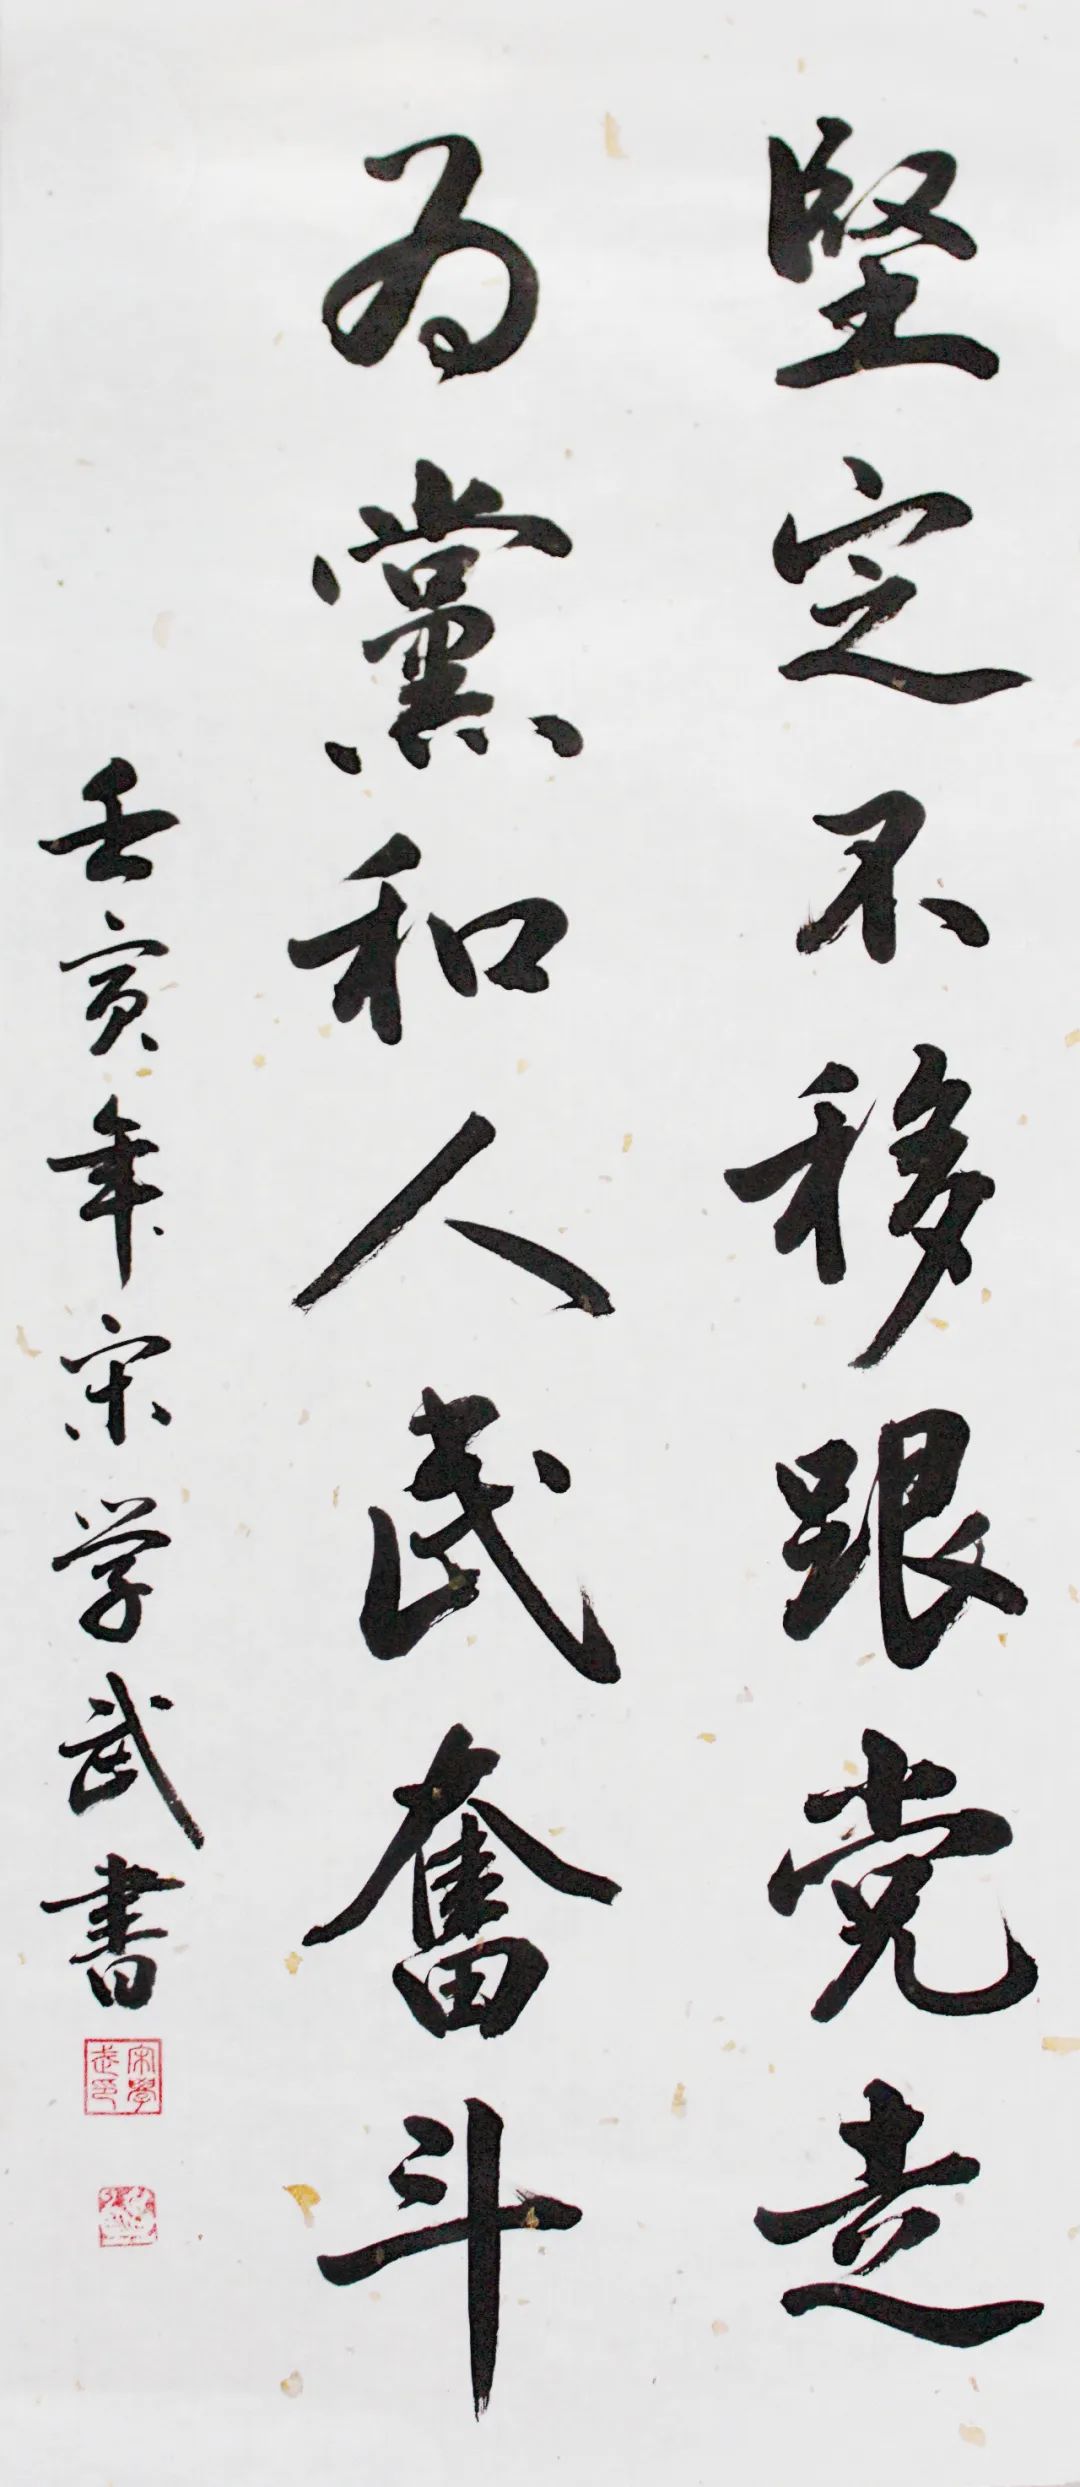 坚定不移跟党走
为黨和人民奮斗
壬寅年宋学武書
宋學武印